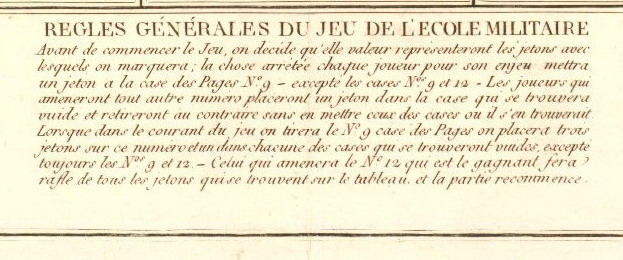 REGLES GÉNÉRALES DU JEU DE L'ECOLE MILITAIRE
Avant de commencer le Jeu, on decide qu'elle valeur représenteront les jetons avec
lesquels on marquera; la chose arrêtée chaque joueur pour son enjeu mettra
un jeton a la case des Pages N.º 9 - excepté les cases N.ºs 9 et 12 - Les joueurs qui
ameneront tout autre numéro placeront un jeton dans la case qui se trouvera
vuide et retireront au contraire sans en mettre ceux des cases ou il s'en trouverait
Lorsque dans le courant du jeu on tirera le N.º 9 case des Pages on placera trois
jetons sur ce numéro et un dans chacune des cases qui se trouveront vuides, excepté
toujours les N.ºs 9 et 12. - Celui qui amenera le N.º 12 qui est le gagnant fera
rafle de tous les jetons qui se trouvent sur le tableau, et la partie recommence.